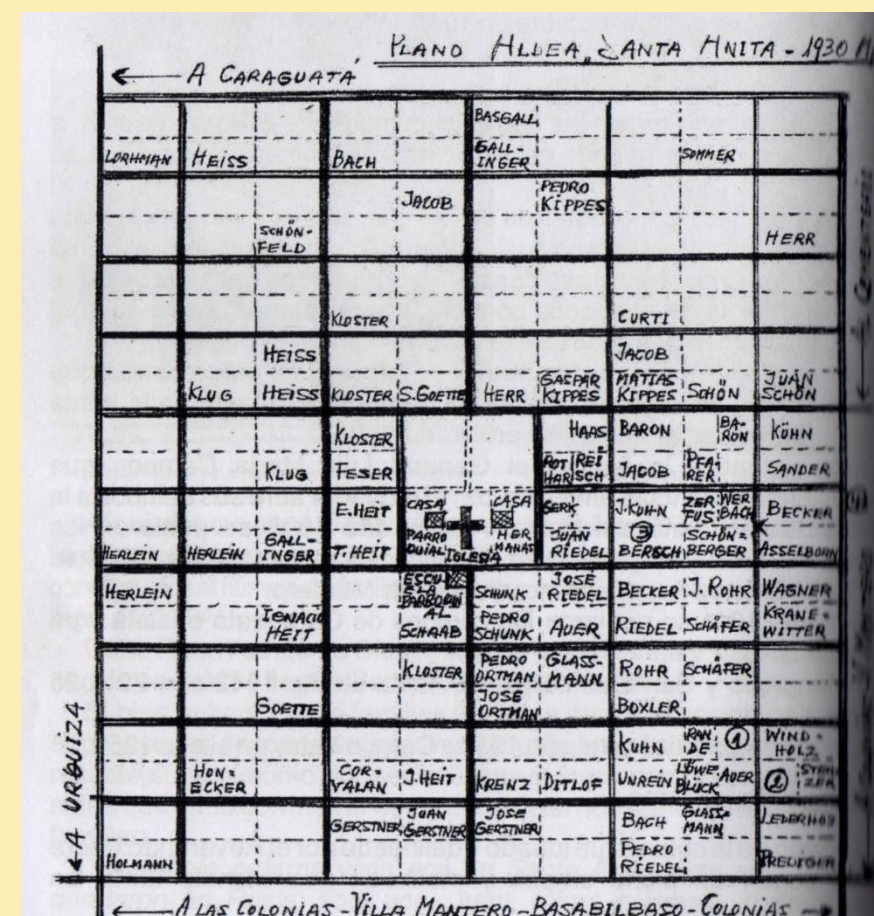 PLANO ALDEA "SANTA ANITA - 1930
← A CARAGUATÁ
BASGALL
LORHMAN HEISS BACH GALL-INGER SOMMER
JACOB PEDRO KIPPES
SCHÖN-FELD HERR
KLOSTER CURTI
HEISS JACOB
KLUG HEISS KLOSTER S.GOETTE HERR GASPAR KIPPES MATIAS KIPPES SCHÖN JUAN SCHÖN
KLOSTER HAAS BARON BA-RON KÜHN
KLUG FESER ROT HAR REI SCH JACOB PFA-RER SANDER
E.HEIT CASA PARRO QUIAL IGLESIA CASA HER MANAS SERK J.KUHN ZER FUS WER BACH BECKER
HERLEIN HERLEIN GALL-INGER T.HEIT JUAN RIEDEL ③ BERSCH SCHÖN-BERGER ASSELBORN
HERLEIN ESCUELA PARROQUIAL SCHUNK JOSÉ RIEDEL BECKER J.ROHR WAGNER
IGNACIO HEIT SCHAAB PEDRO SCHUNK AUER RIEDEL SCHÄFER KRANE-WITTER
KLOSTER PEDRO ORTMAN GLASS-MANN ROHR SCHÄFER
GOETTE JOSE ORTMAN BOXLER
KUHN RAN DE ① WIND-HOLZ
HON-ECKER COR-VALAN J.HEIT KRENZ DITLOF UNREIN LÖWE BLÜCK AUER ②
GERSTNER JUAN GERSTNER JOSE GERSTNER BACH GLASS-MANN LEDERHOS
HOLMANN PEDRO RIEDEL PREDIGER
← A URQUIZA
AL CEMENTERIO
← A LAS COLONIAS - VILLA MANTERO - BASABILBASO - COLONIAS →